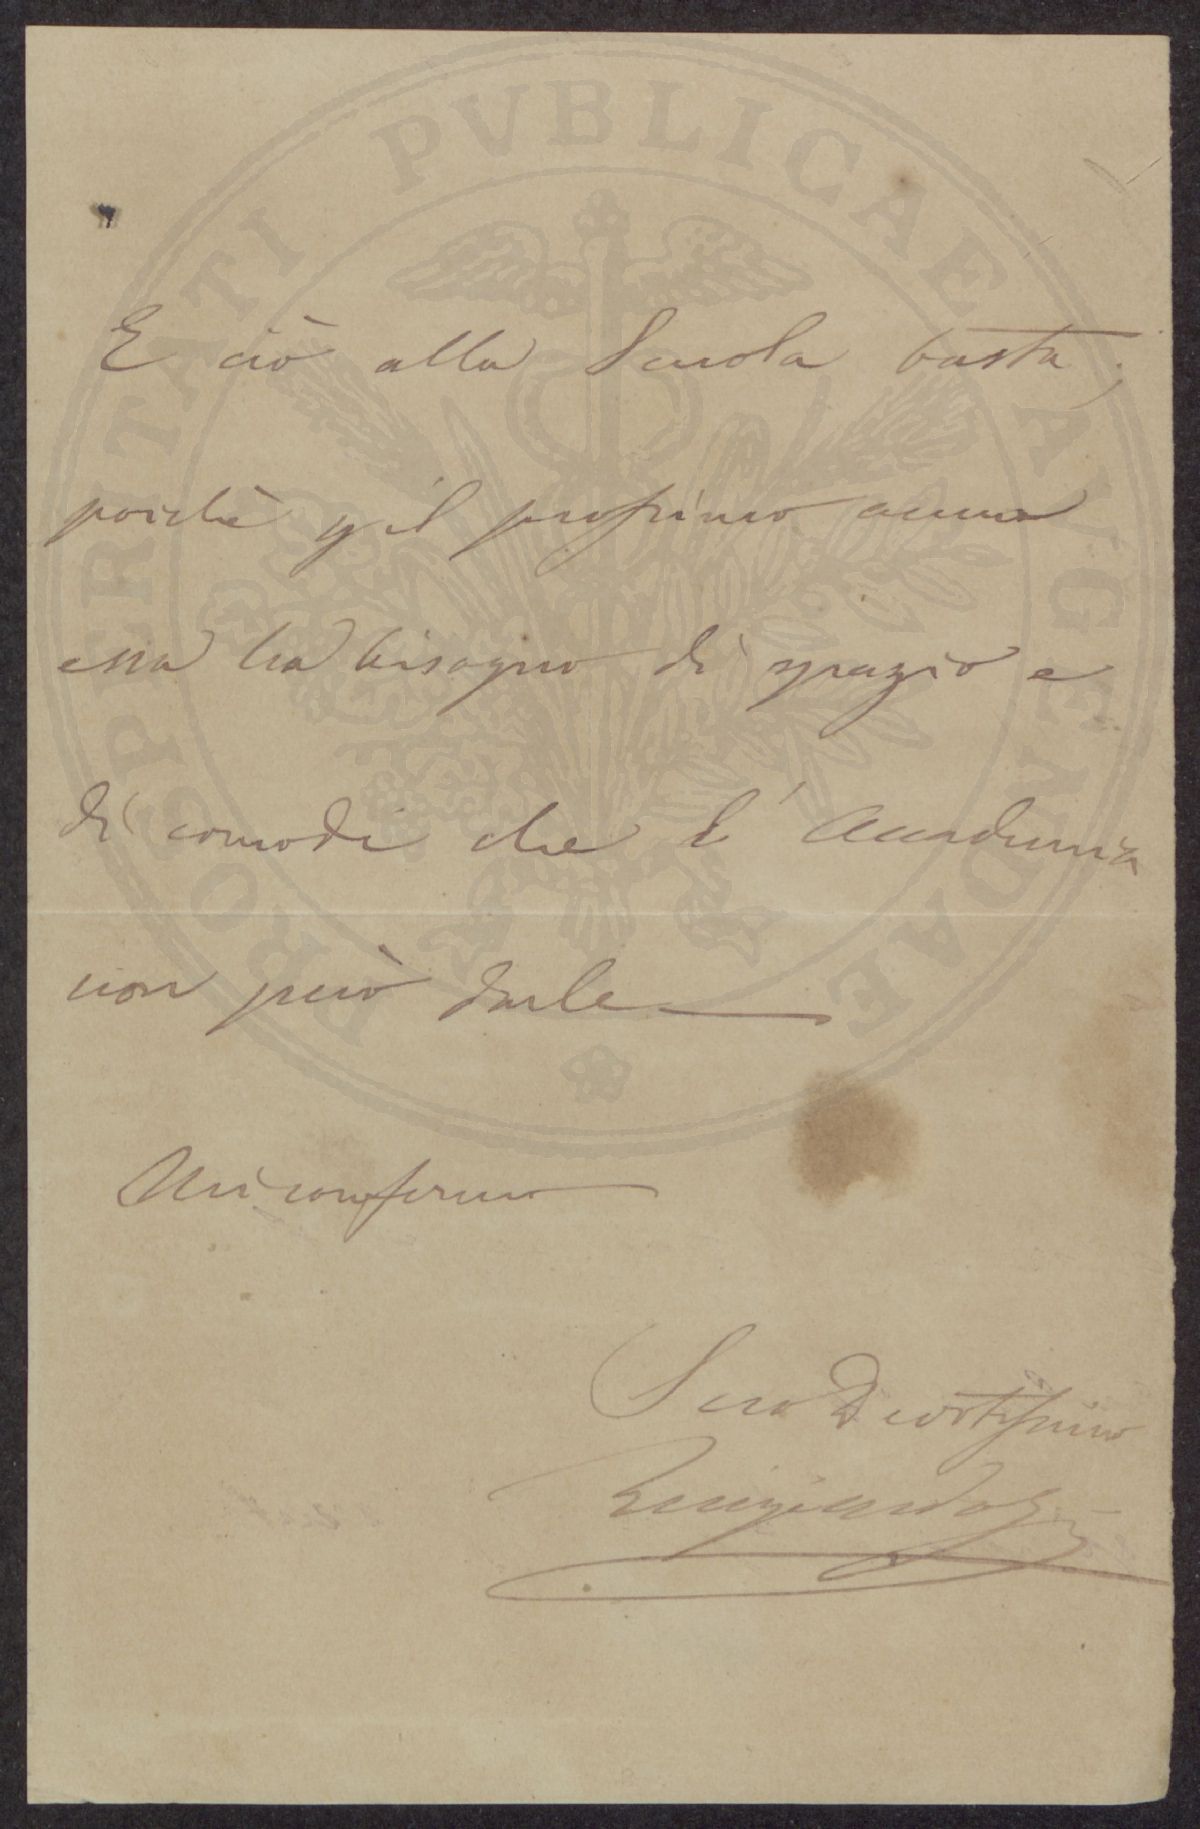 PROSPERITATI PVBLICAE AVGENDAE
E ciò alla Scuola basta;
poichè p il prossimo anno
essa ha bisogno di spazio e
di comodi che l'Accademia
non può darle
Mi confermo
Suo Devotissimo